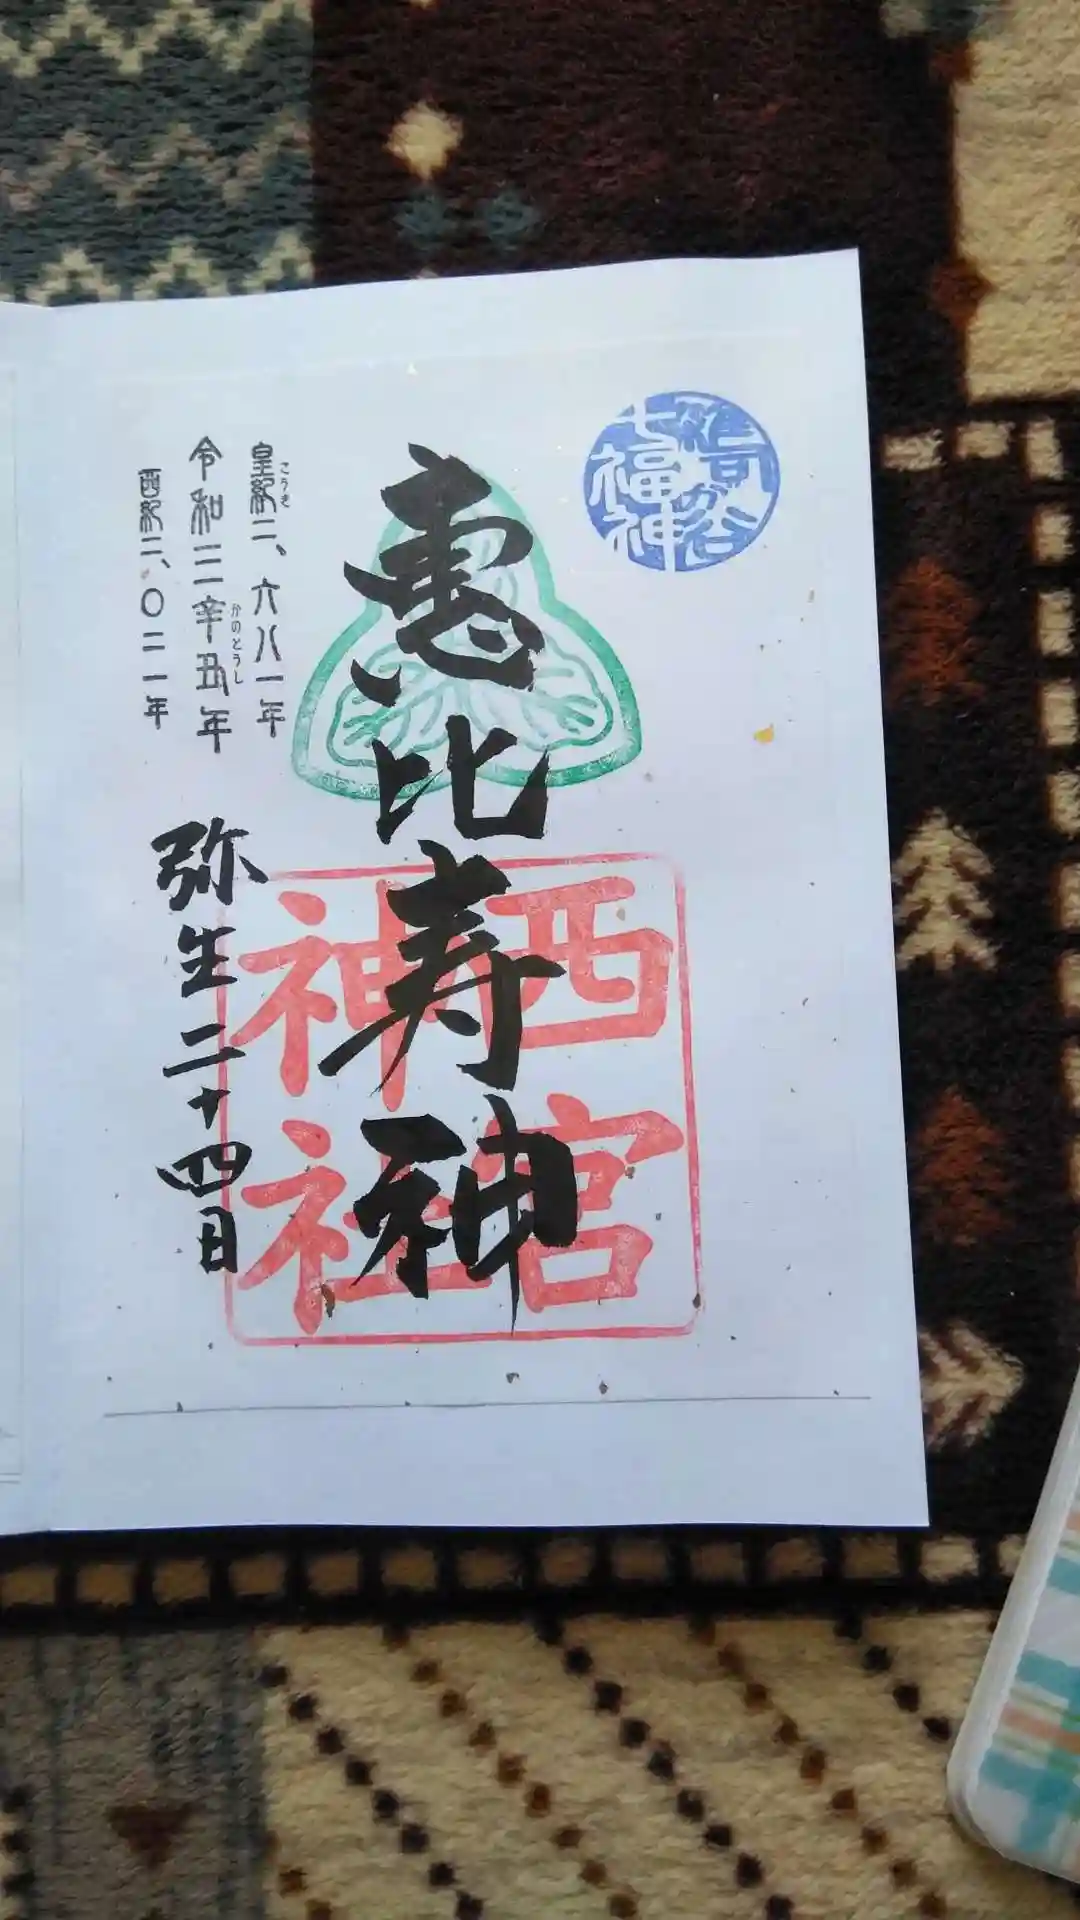 雑司が谷
七福神
恵比寿神
西宮
神社
皇紀二、六八一年
こうき
令和三辛丑年
かのとうし
西紀二、〇二一年
弥生二十四日